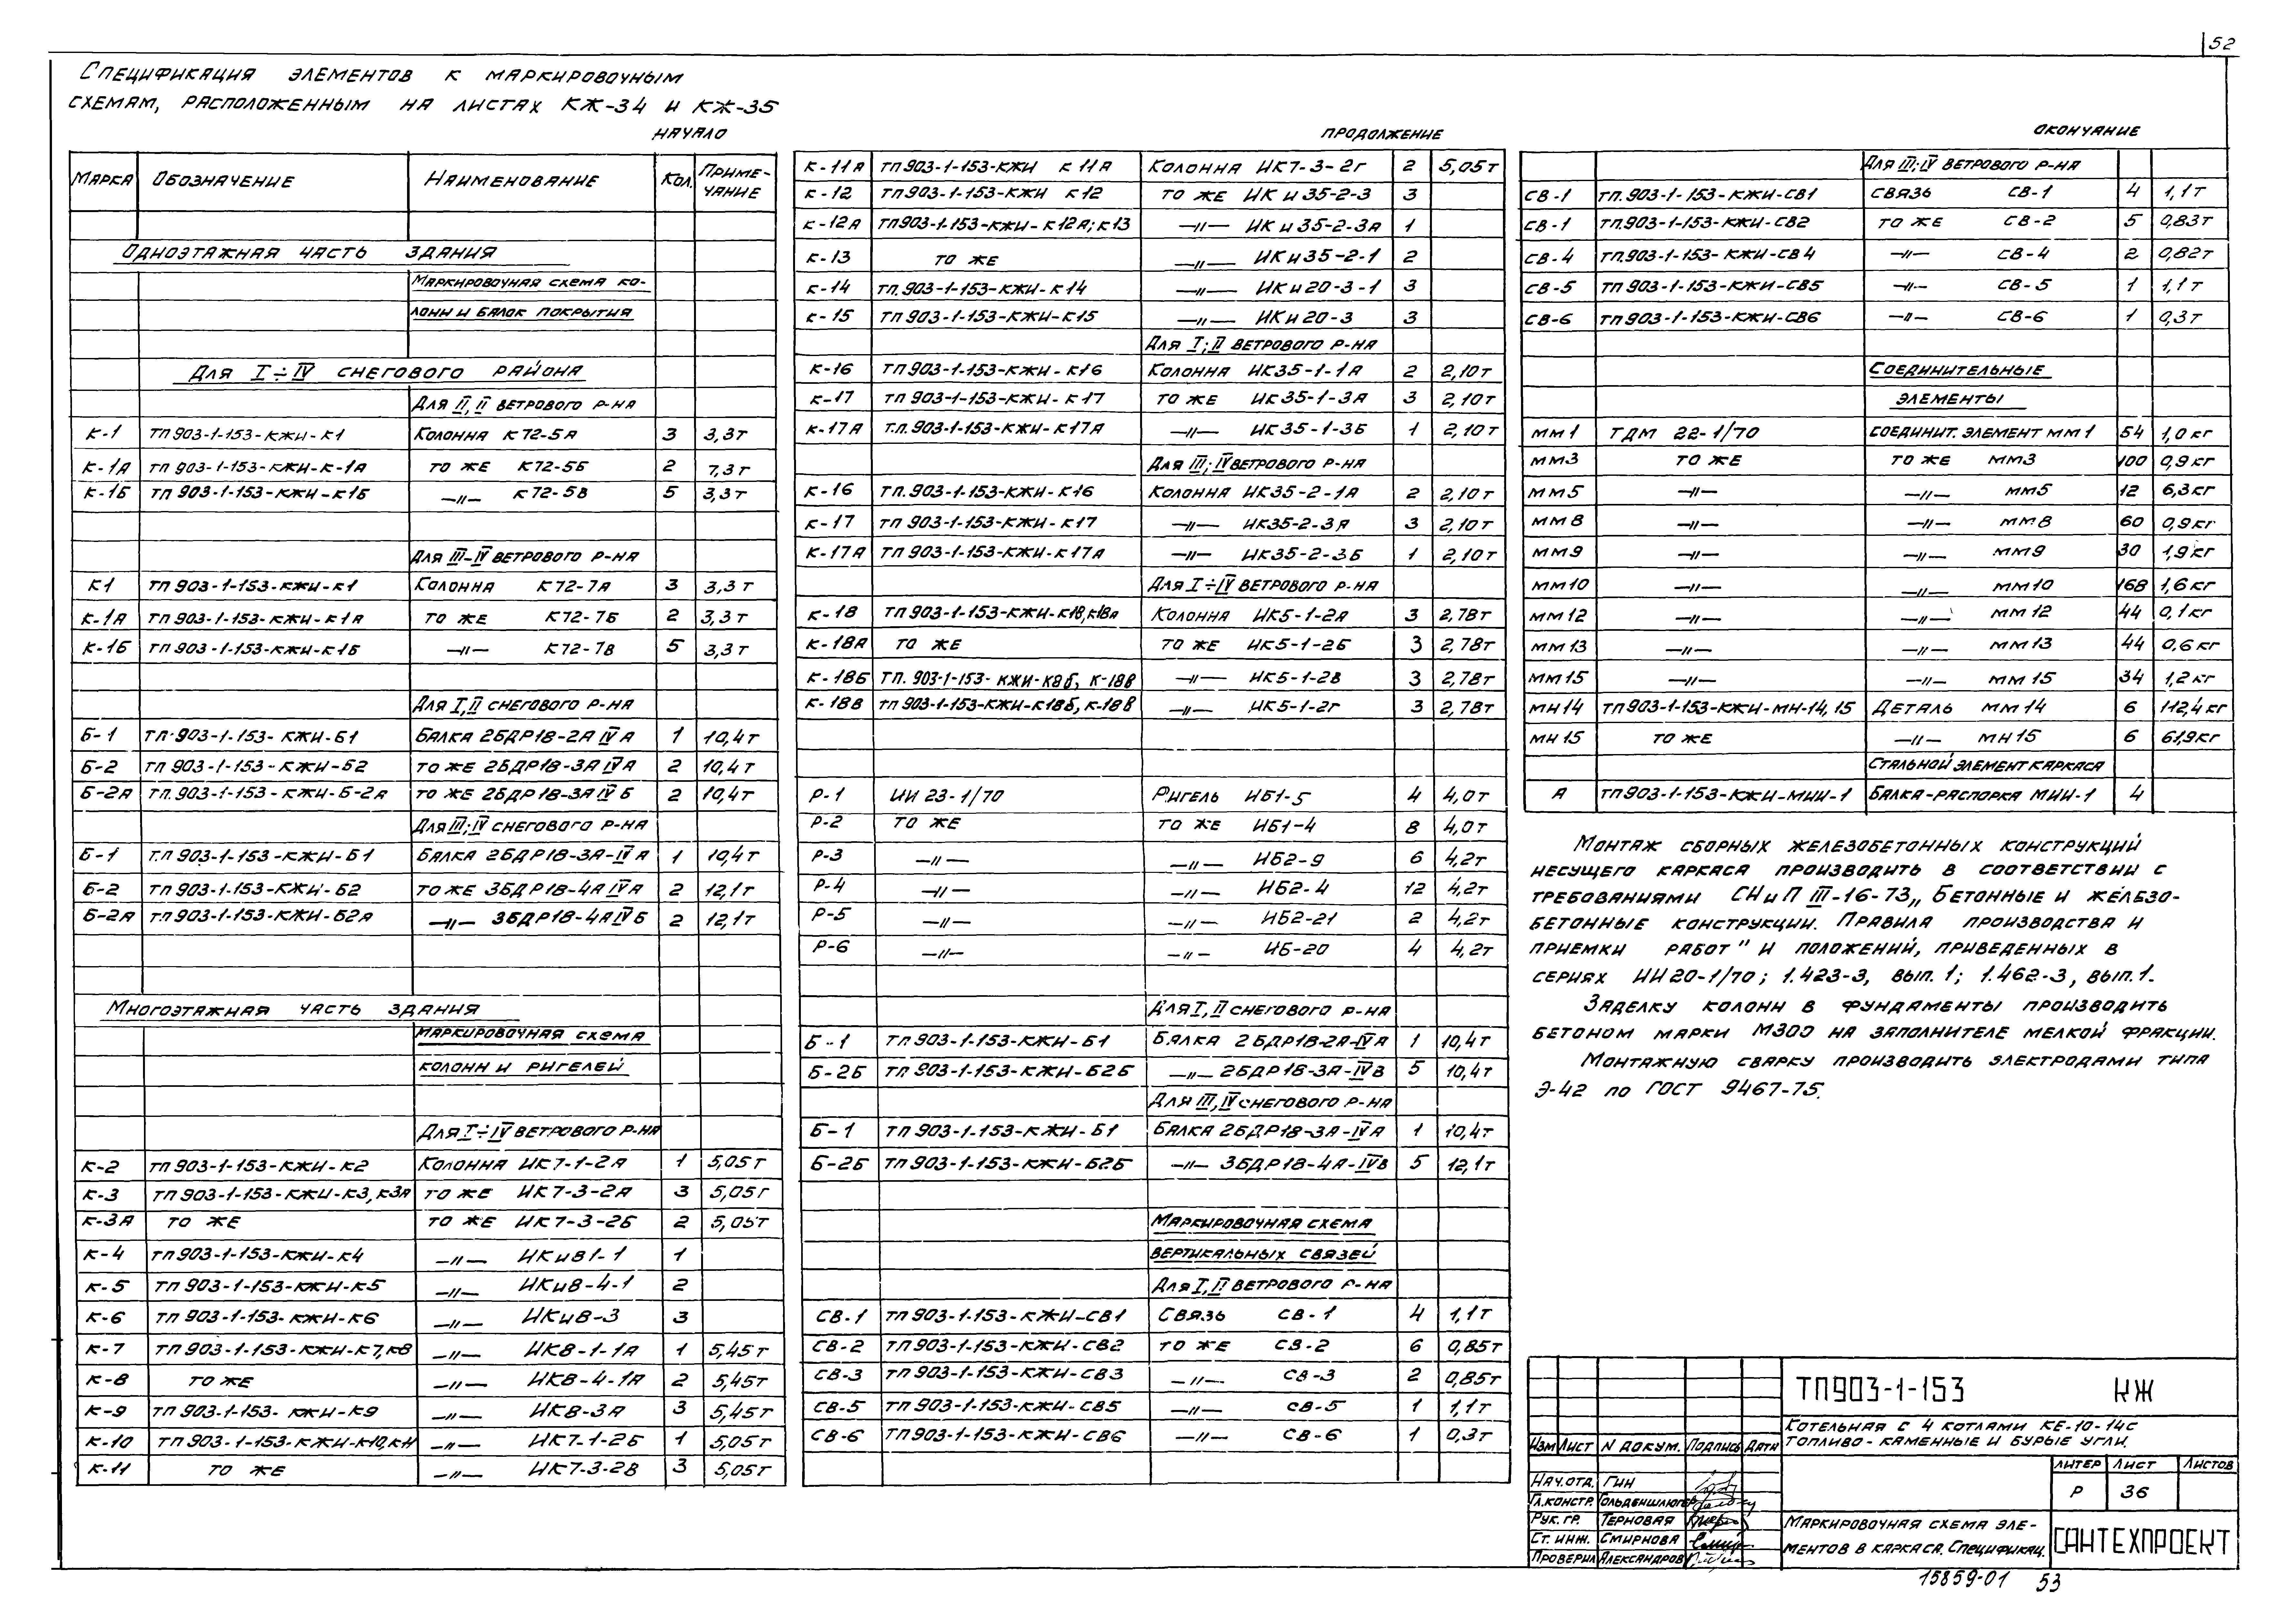 52
Спецификация элементов к маркировочным
схемам, расположенным на листах КЖ-34 и КЖ-35
начало
Марка Обозначение Наименование Кол. Примечание
Одноэтажная часть здания
Маркировочная схема ко-
лонн и балок покрытия
Для I÷IV снегового района
Для II, II ветрового р-на
К-1 ТП 903-1-153-КЖИ-К1 Колонна К72-5А 3 3,3т
К-1А ТП 903-1-153-КЖИ-К-1А то же К72-5Б 2 7,3т
К-1Б ТП 903-1-153-КЖИ-К1Б —〃— К72-5В 5 3,3т
Для III-IV ветрового р-на
К1 ТП 903-1-153-КЖИ-К1 Колонна К72-7А 3 3,3т
К-1А ТП 903-1-153-КЖИ-К1А то же К72-7Б 2 3,3т
К-1Б ТП 903-1-153-КЖИ-К1Б —〃— К72-7В 5 3,3т
Для I, II снегового р-на
Б-1 ТП·903-1-153-КЖИ-Б1 Балка 2БДР18-2А IV А 1 10,4т
Б-2 ТП 903-1-153-КЖИ-Б2 то же 2БДР18-3А IV А 2 10,4т
Б-2А ТП.903-1-153-КЖИ-Б-2А то же 2БДР18-3А IV Б 2 10,4т
Для III; IV снегового р-на
Б-1 Т.П 903-1-153-КЖИ-Б1 Балка 2БДР18-3А-IV А 1 10,4т
Б-2 ТП 903-1-153-КЖИ-Б2 то же 3БДР18-4А IV А 2 12,1т
Б-2А ТП 903-1-153-КЖИ-Б2А —〃— 3БДР18-4А IV Б 2 12,1т
Многоэтажная часть здания
Маркировочная схема
колонн и ригелей
Для I÷IV ветрового р-на
К-2 ТП 903-1-153-КЖИ-К2 Колонна ИК7-1-2А 1 5,05т
К-3 ТП 903-1-153-КЖИ-К3, К3А то же ИК7-3-2А 3 5,05т
К-3А то же то же ИК7-3-2Б 2 5,05т
К-4 ТП 903-1-153-КЖИ-К4 —〃— ИКи81-1 1
К-5 ТП 903-1-153-КЖИ-К5 —〃— ИКи8-4-1 2
К-6 ТП 903-1-153-КЖИ-К6 —〃— ИКи8-3 3
К-7 ТП 903-1-153-КЖИ-К7, К8 —〃— ИК8-1-1А 1 5,45т
К-8 то же —〃— ИК8-4-1А 2 5,45т
К-9 ТП 903-1-153-КЖИ-К9 —〃— ИК8-3А 3 5,45т
К-10 ТП 903-1-153-КЖИ-К10, К11 —〃— ИК7-1-2Б 1 5,05т
К-11 то же —〃— ИК7-3-2В 3 5,05т
продолжение
К-11А ТП 903-1-153-КЖИ К11А Колонна ИК7-3-2Г 2 5,05т
К-12 ТП 903-1-153-КЖИ К12 то же ИК и 35-2-3 3
К-12А ТП 903-1-153-КЖИ-К12А; К13 —〃— ИК и 35-2-3А 1
К-13 то же —〃— ИКи35-2-1 2
К-14 ТП.903-1-153-КЖИ-К14 —〃— ИКи20-3-1 3
К-15 ТП 903-1-153-КЖИ-К15 —〃— ИКи20-3 3
Для I; II ветрового р-на
К-16 ТП 903-1-153-КЖИ-К16 Колонна ИК35-1-1А 2 2,10т
К-17 ТП 903-1-153-КЖИ-К17 то же ИК35-1-3А 3 2,10т
К-17А Т.П.903-1-153-КЖИ-К17А —〃— ИК35-1-3Б 1 2,10т
Для III; IV ветрового р-на
К-16 ТП.903-1-153-КЖИ-К16 Колонна ИК35-2-1А 2 2,10т
К-17 ТП 903-1-153-КЖИ-К17 —〃— ИК35-2-3А 3 2,10т
К-17А ТП 903-1-153-КЖИ-К17А —〃— ИК35-2-3Б 1 2,10т
Для I÷IV ветрового р-на
К-18 ТП 903-1-153-КЖИ-К18, К18А Колонна ИК5-1-2А 3 2,78т
К-18А то же то же ИК5-1-2Б 3 2,78т
К-18Б ТП. 903-1-153-КЖИ-К8Б, К-18В —〃— ИК5-1-2В 3 2,78т
К-18В ТП 903-1-153-КЖИ-К18Б, К-18В —〃— ИК5-1-2Г 3 2,78т
Р-1 ИИ 23-1/70 Ригель ИБ1-5 4 4,0т
Р-2 то же то же ИБ1-4 8 4,0т
Р-3 —〃— —〃— ИБ2-9 6 4,2т
Р-4 —〃— —〃— ИБ2-4 12 4,2т
Р-5 —〃— —〃— ИБ2-21 2 4,2т
Р-6 —〃— —〃— ИБ-20 4 4,2т
Для I, II снегового р-на
Б-1 ТП 903-1-153-КЖИ-Б1 Балка 2БДР18-2А-IV А 1 10,4т
Б-2Б ТП 903-1-153-КЖИ-Б2Б —〃— 2БДР18-3А-IV В 5 10,4т
Для III, IV снегового р-на
Б-1 ТП 903-1-153-КЖИ-Б1 Балка 2БДР18-3А-IV А 1 10,4т
Б-2Б ТП 903-1-153-КЖИ-Б2Б —〃— 3БДР18-4А-IV В 5 12,1т
Маркировочная схема
вертикальных связей
Для I, II ветрового р-на
СВ-1 ТП 903-1-153-КЖИ-СВ1 Связь СВ-1 4 1,1т
СВ-2 ТП 903-1-153-КЖИ-СВ2 то же СВ-2 6 0,85т
СВ-3 ТП 903-1-153-КЖИ-СВ3 —〃— СВ-3 2 0,85т
СВ-5 ТП 903-1-153-КЖИ-СВ5 —〃— СВ-5 1 1,1т
СВ-6 ТП 903-1-153-КЖИ-СВ6 —〃— СВ-6 1 0,3т
окончание
Для III; IV ветрового р-на
СВ-1 ТП.903-1-153-КЖИ-СВ1 связь СВ-1 4 1,1т
СВ-1 ТП.903-1-153-КЖИ-СВ2 то же СВ-2 5 0,83т
СВ-4 ТП.903-1-153-КЖИ-СВ4 —〃— СВ-4 2 0,82т
СВ-5 ТП 903-1-153-КЖИ-СВ5 —〃— СВ-5 1 1,1т
СВ-6 ТП 903-1-153-КЖИ-СВ6 —〃— СВ-6 1 0,3т
Соединительные
элементы
ММ1 ТДМ 22-1/70 Соединит. элемент ММ1 54 1,0 кг
ММ3 то же то же ММ3 100 0,9 кг
ММ5 —〃— —〃— ММ5 12 6,3 кг
ММ8 —〃— —〃— ММ8 60 0,9 кг
ММ9 —〃— —〃— ММ9 30 1,9 кг
ММ10 —〃— —〃— ММ10 168 1,6 кг
ММ12 —〃— —〃— ММ12 44 0,1 кг
ММ13 —〃— —〃— ММ13 44 0,6 кг
ММ15 —〃— —〃— ММ15 34 1,2 кг
МН14 ТП 903-1-153-КЖИ-МН-14,15 Деталь ММ14 6 112,4 кг
МН15 то же —〃— МН15 6 61,9 кг
Стальной элемент каркаса
А ТП 903-1-153-КЖИ-МИИ-1 Балка-распорка МИИ-1 4
Монтаж сборных железобетонных конструкций
несущего каркаса производить в соответствии с
требованиями СНиП III-16-73„ Бетонные и железо-
бетонные конструкции. Правила производства и
приемки работ" и положений, приведенных в
сериях ИИ20-1/70; 1.423-3, вып. 1; 1.462-3, вып.1.
Заделку колонн в фундаменты производить
бетоном марки М300 на заполнителе мелкой фракции.
Монтажную сварку производить электродами типа
Э-42 по ГОСТ 9467-75.
ТП903-1-153 КЖ
Котельная с 4 котлами КЕ-10-14с
Топливо-каменные и бурые угли.
Изм Лист N докум. Подпись Дата
Нач.отд. Гин
Гл.констр. Гольденшлюгер
Рук. гр. Терновая
Ст. инж. Смирнова
Проверил Александров
Литер Лист Листов
Р 36
Маркировочная схема эле-
ментов в каркаса. Спецификац.
САНТЕХПРОЕКТ
15859-01 53